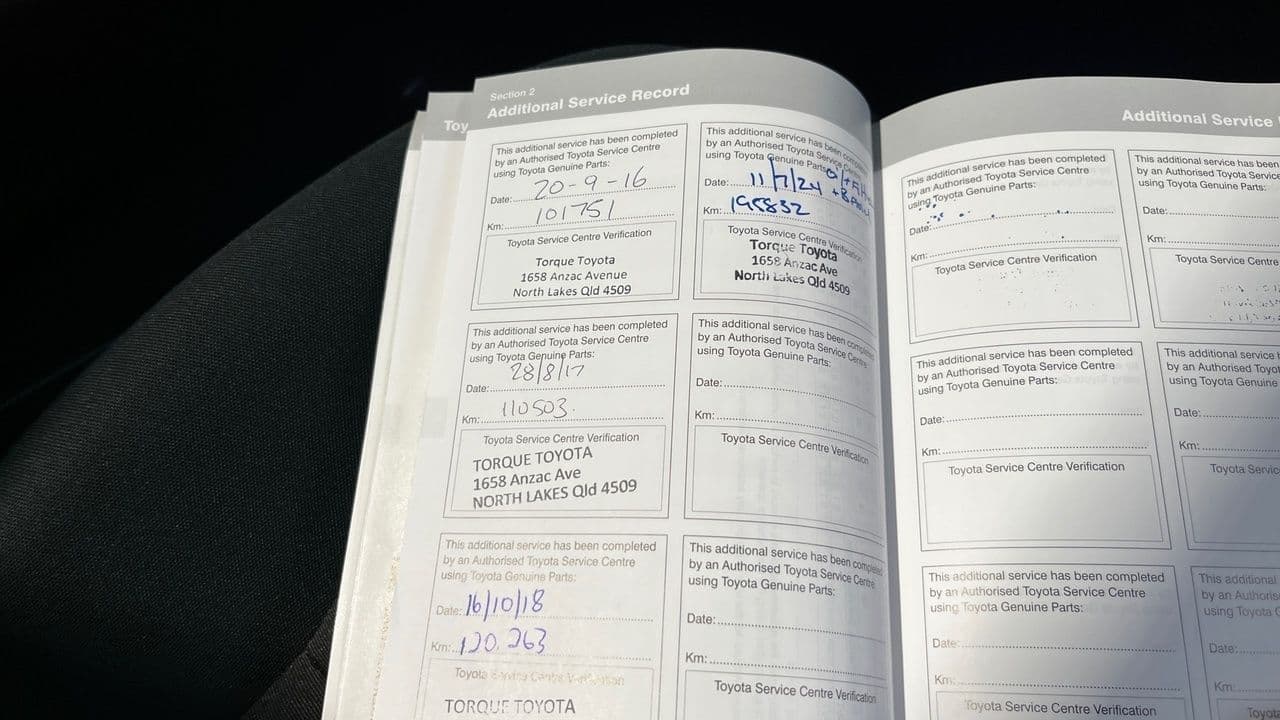 Section 2
Additional Service Record
Toy
This additional service has been completed
by an Authorised Toyota Service Centre
using Toyota Genuine Parts:
Date: 20-9-16
Km: 101751
Toyota Service Centre Verification
Torque Toyota
1658 Anzac Avenue
North Lakes Qld 4509
This additional service has been completed
by an Authorised Toyota Service Centre
using Toyota Genuine Parts:
28/8/17
Date:
Km: 110503.
Toyota Service Centre Verification
TORQUE TOYOTA
1658 Anzac Ave
NORTH LAKES Qld 4509
This additional service has been completed
by an Authorised Toyota Service Centre
using Toyota Genuine Parts:
Date: 16/10/18
Km: 120.263
Toyota Service Centre Verification
TORQUE TOYOTA
This additional service has been comple
by an Authorised Toyota Service
using Toyota Genuine Parts:
Date: 11/7/24
Km:
Toyota Service Centre Verification
Torque Toyota
1658 Anzac Ave
North Lakes Qld 4509
This additional service has been completed
by an Authorised Toyota Service Centre
using Toyota Genuine Parts:
Date:
Km:
Toyota Service Centre Verification
This additional service has been completed
by an Authorised Toyota Service Centre
using Toyota Genuine Parts:
Date:
Km:
Toyota Service Centre Verification
Additional Service
This additional service has been completed
by an Authorised Toyota Service Centre
using Toyota Genuine Parts:
Date:
Km:
Toyota Service Centre Verification
This additional service has been completed
by an Authorised Toyota Service Centre
using Toyota Genuine Parts:
Date:
Km:
Toyota Service Centre Verification
This additional service has been completed
by an Authorised Toyota Service Centre
using Toyota Genuine Parts:
Date:
Km:
Toyota Service Centre Verification
This additional service has been
by an Authorised Toyota Service
using Toyota Genuine Parts:
Date:
Km:
Toyota Service Centre
This additional service
by an Authorised Toyot
using Toyota Genuine
Date:
Km:
Toyota Servic
This additional
by an Authoris
using Toyota
Date:
Km:
Toyota